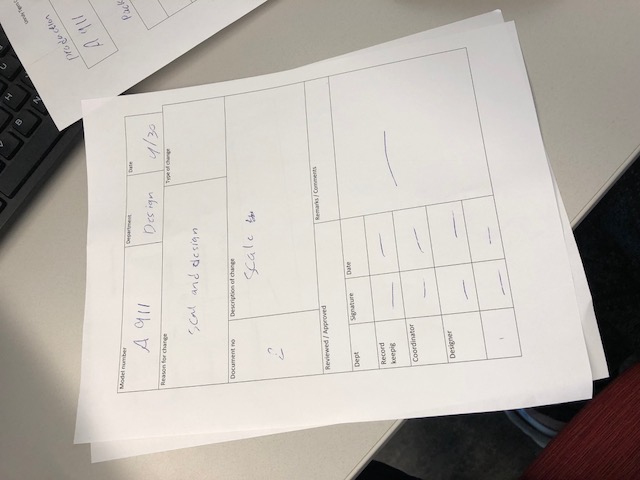 Model number
A 911
Department
Design
Date
4/30
Reason for change
scal and design
Type of change
Document no
2
Description of change
Scale
Reviewed / Approved
Remarks / Comments
Dept
Signature
Date
Record
keepig
Coordinator
Designer
production
A 911
Pack